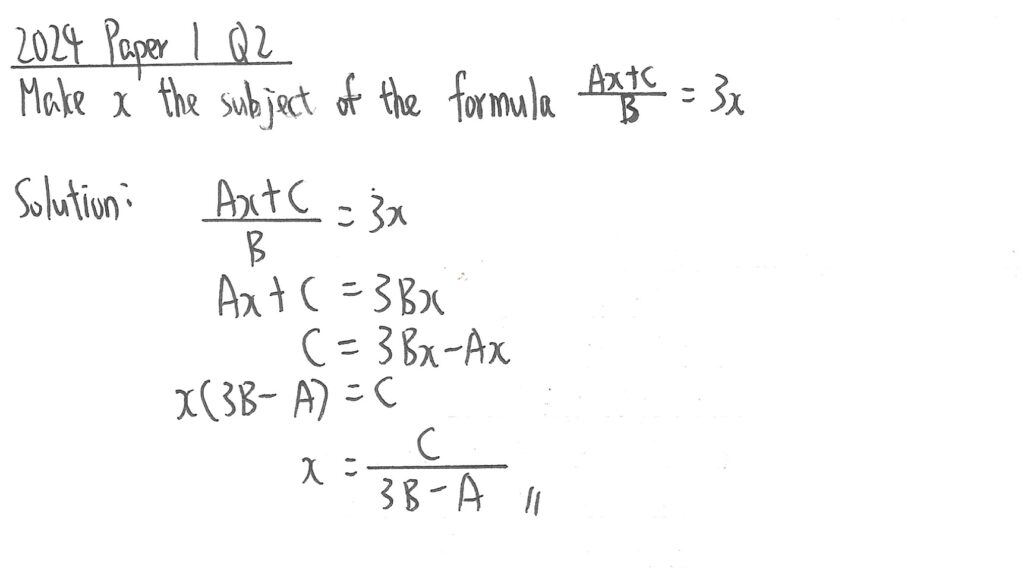 2024 Paper 1 Q2
Make x the subject of the formula (Ax+C)/B = 3x
Solution: (Ax+C)/B = 3x
Ax+C = 3Bx
C = 3Bx-Ax
x(3B-A) = C
x = C/(3B-A) //